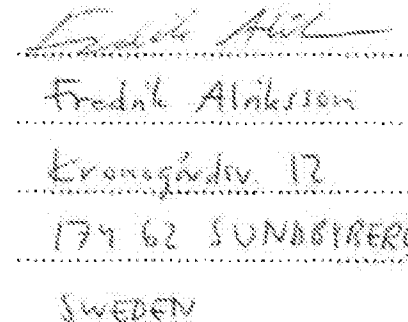 Fredrik Alriksson
Kronogårdsv. 12
174 62 SUNDBYBERG
SWEDEN